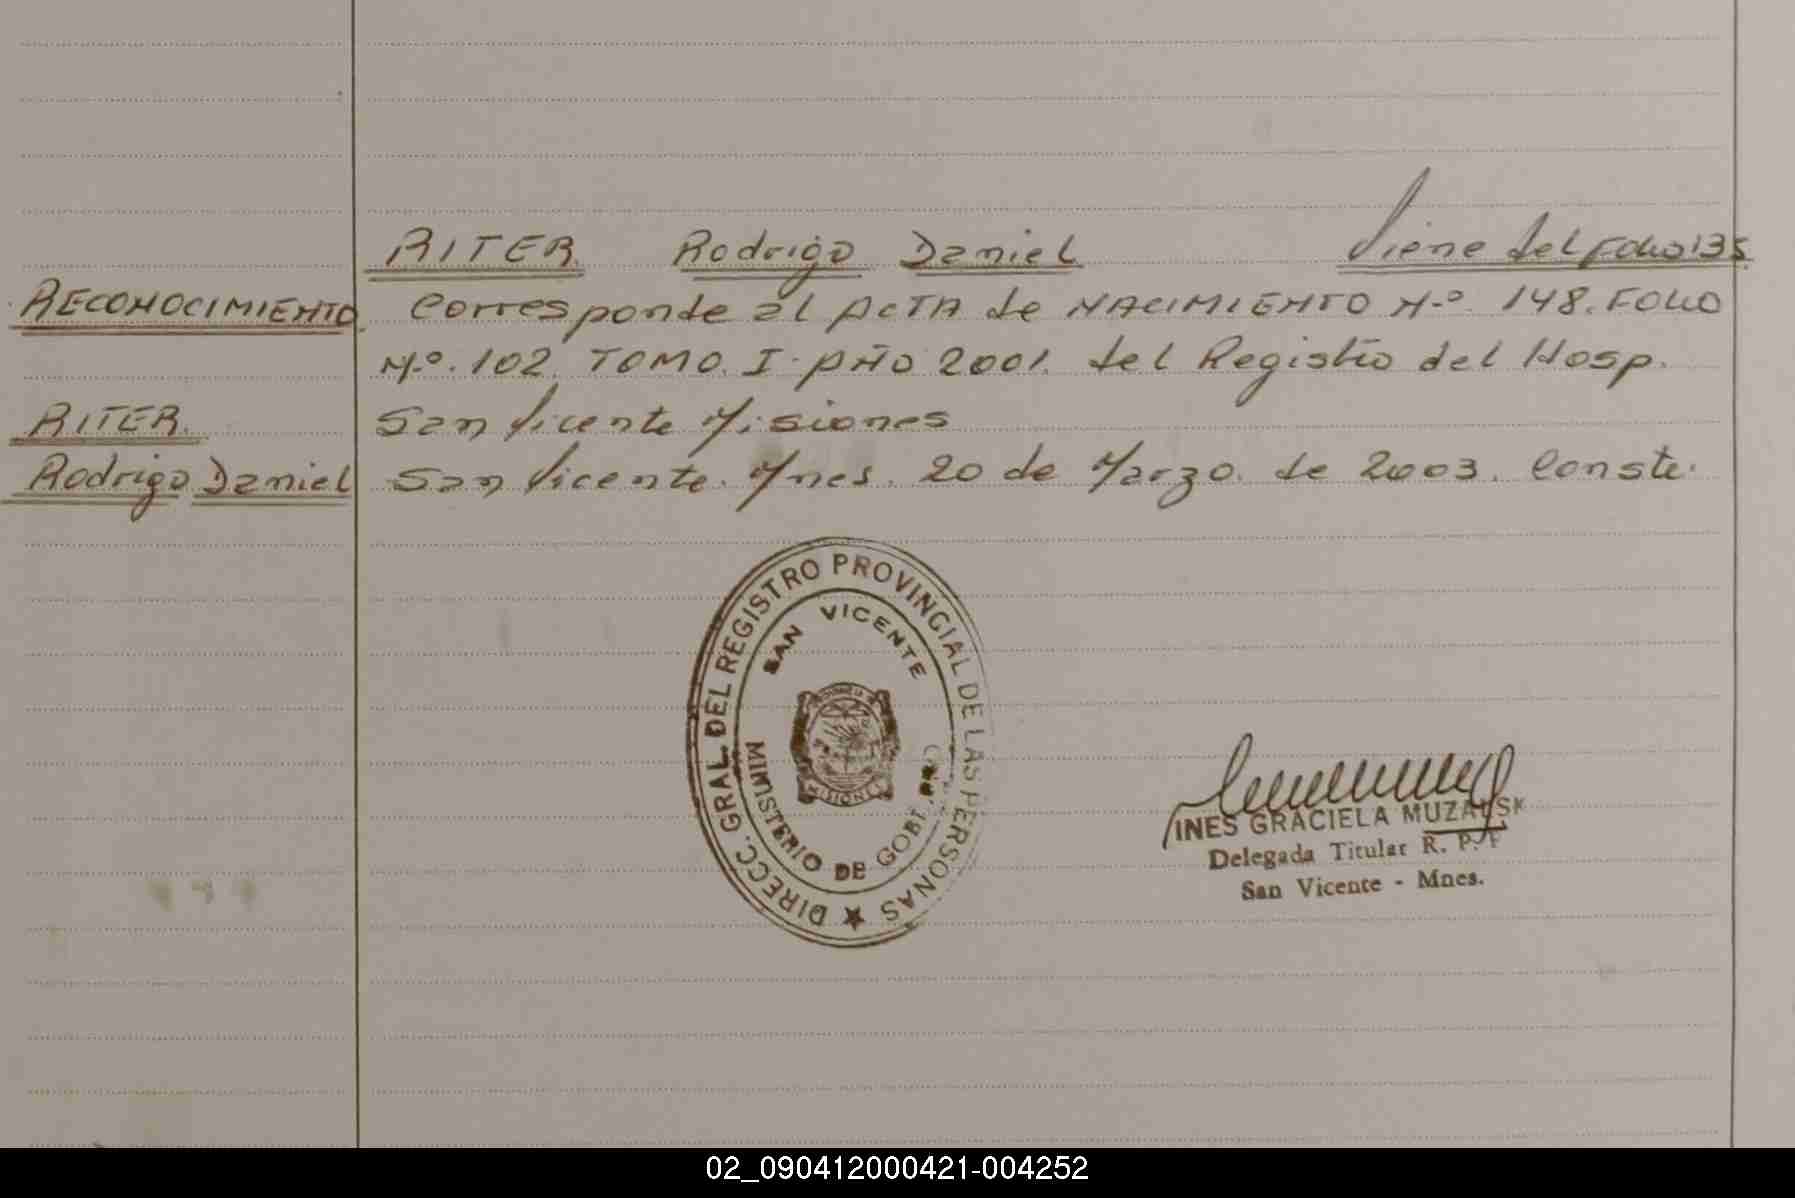 RITER Rodrigo Daniel Viene del Folio 135.
RECONOCIMIENTO. Corresponde al ACTA de NACIMIENTO N.º 148. FOLIO
N.º 102. TOMO. I. AÑO 2001. del Registro del Hosp.
RITER. San Vicente Misiones
Rodrigo Daniel San Vicente. Mnes. 20 de Marzo. de 2003. Conste.
DIRECC. GRAL. DEL REGISTRO PROVINCIAL DE LAS PERSONAS
SAN VICENTE
MISIONES
MINISTERIO DE GOBIERNO
INES GRACIELA MUZALSK
Delegada Titular R. P. P
San Vicente - Mnes.
02_090412000421-004252